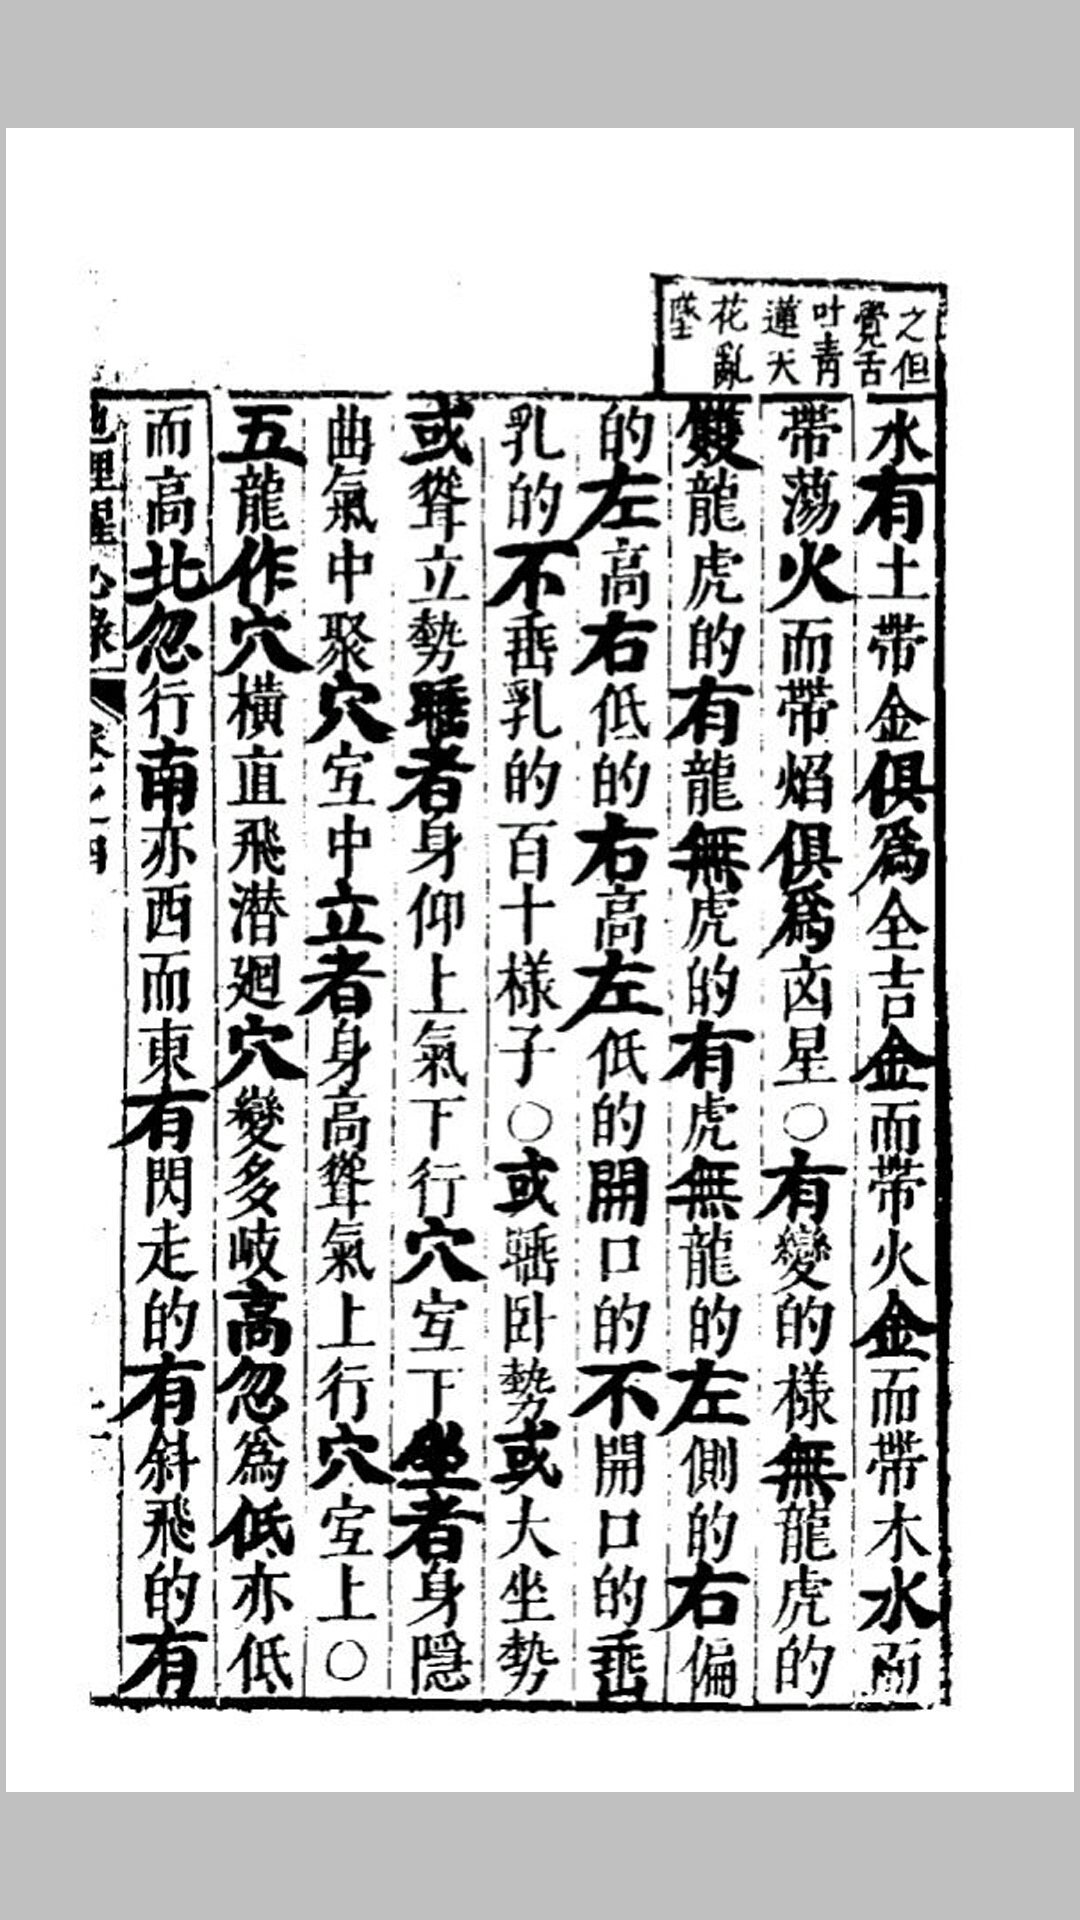 之但
覺舌
吐青
蓮天
花亂
墜
水有土帶金俱爲全吉金而帶火金而帶木水而
帶蕩火而帶焰俱爲凶星○有變的樣無龍虎的
雙龍虎的有龍無虎的有虎無龍的左側的右偏
的左高右低的右高左低的開口的不開口的垂
乳的不垂乳的百十樣子○或臥勢或大坐勢
或聳立勢睡者身仰上氣下行穴宜下坐者身隱
曲氣中聚穴宜中立者身高聳氣上行穴宜上○
五龍作穴橫直飛潜廻穴變多岐高忽爲低亦低
而高北忽行南亦西而東有閃走的有斜飛的有
地理醒心錄 卷之四